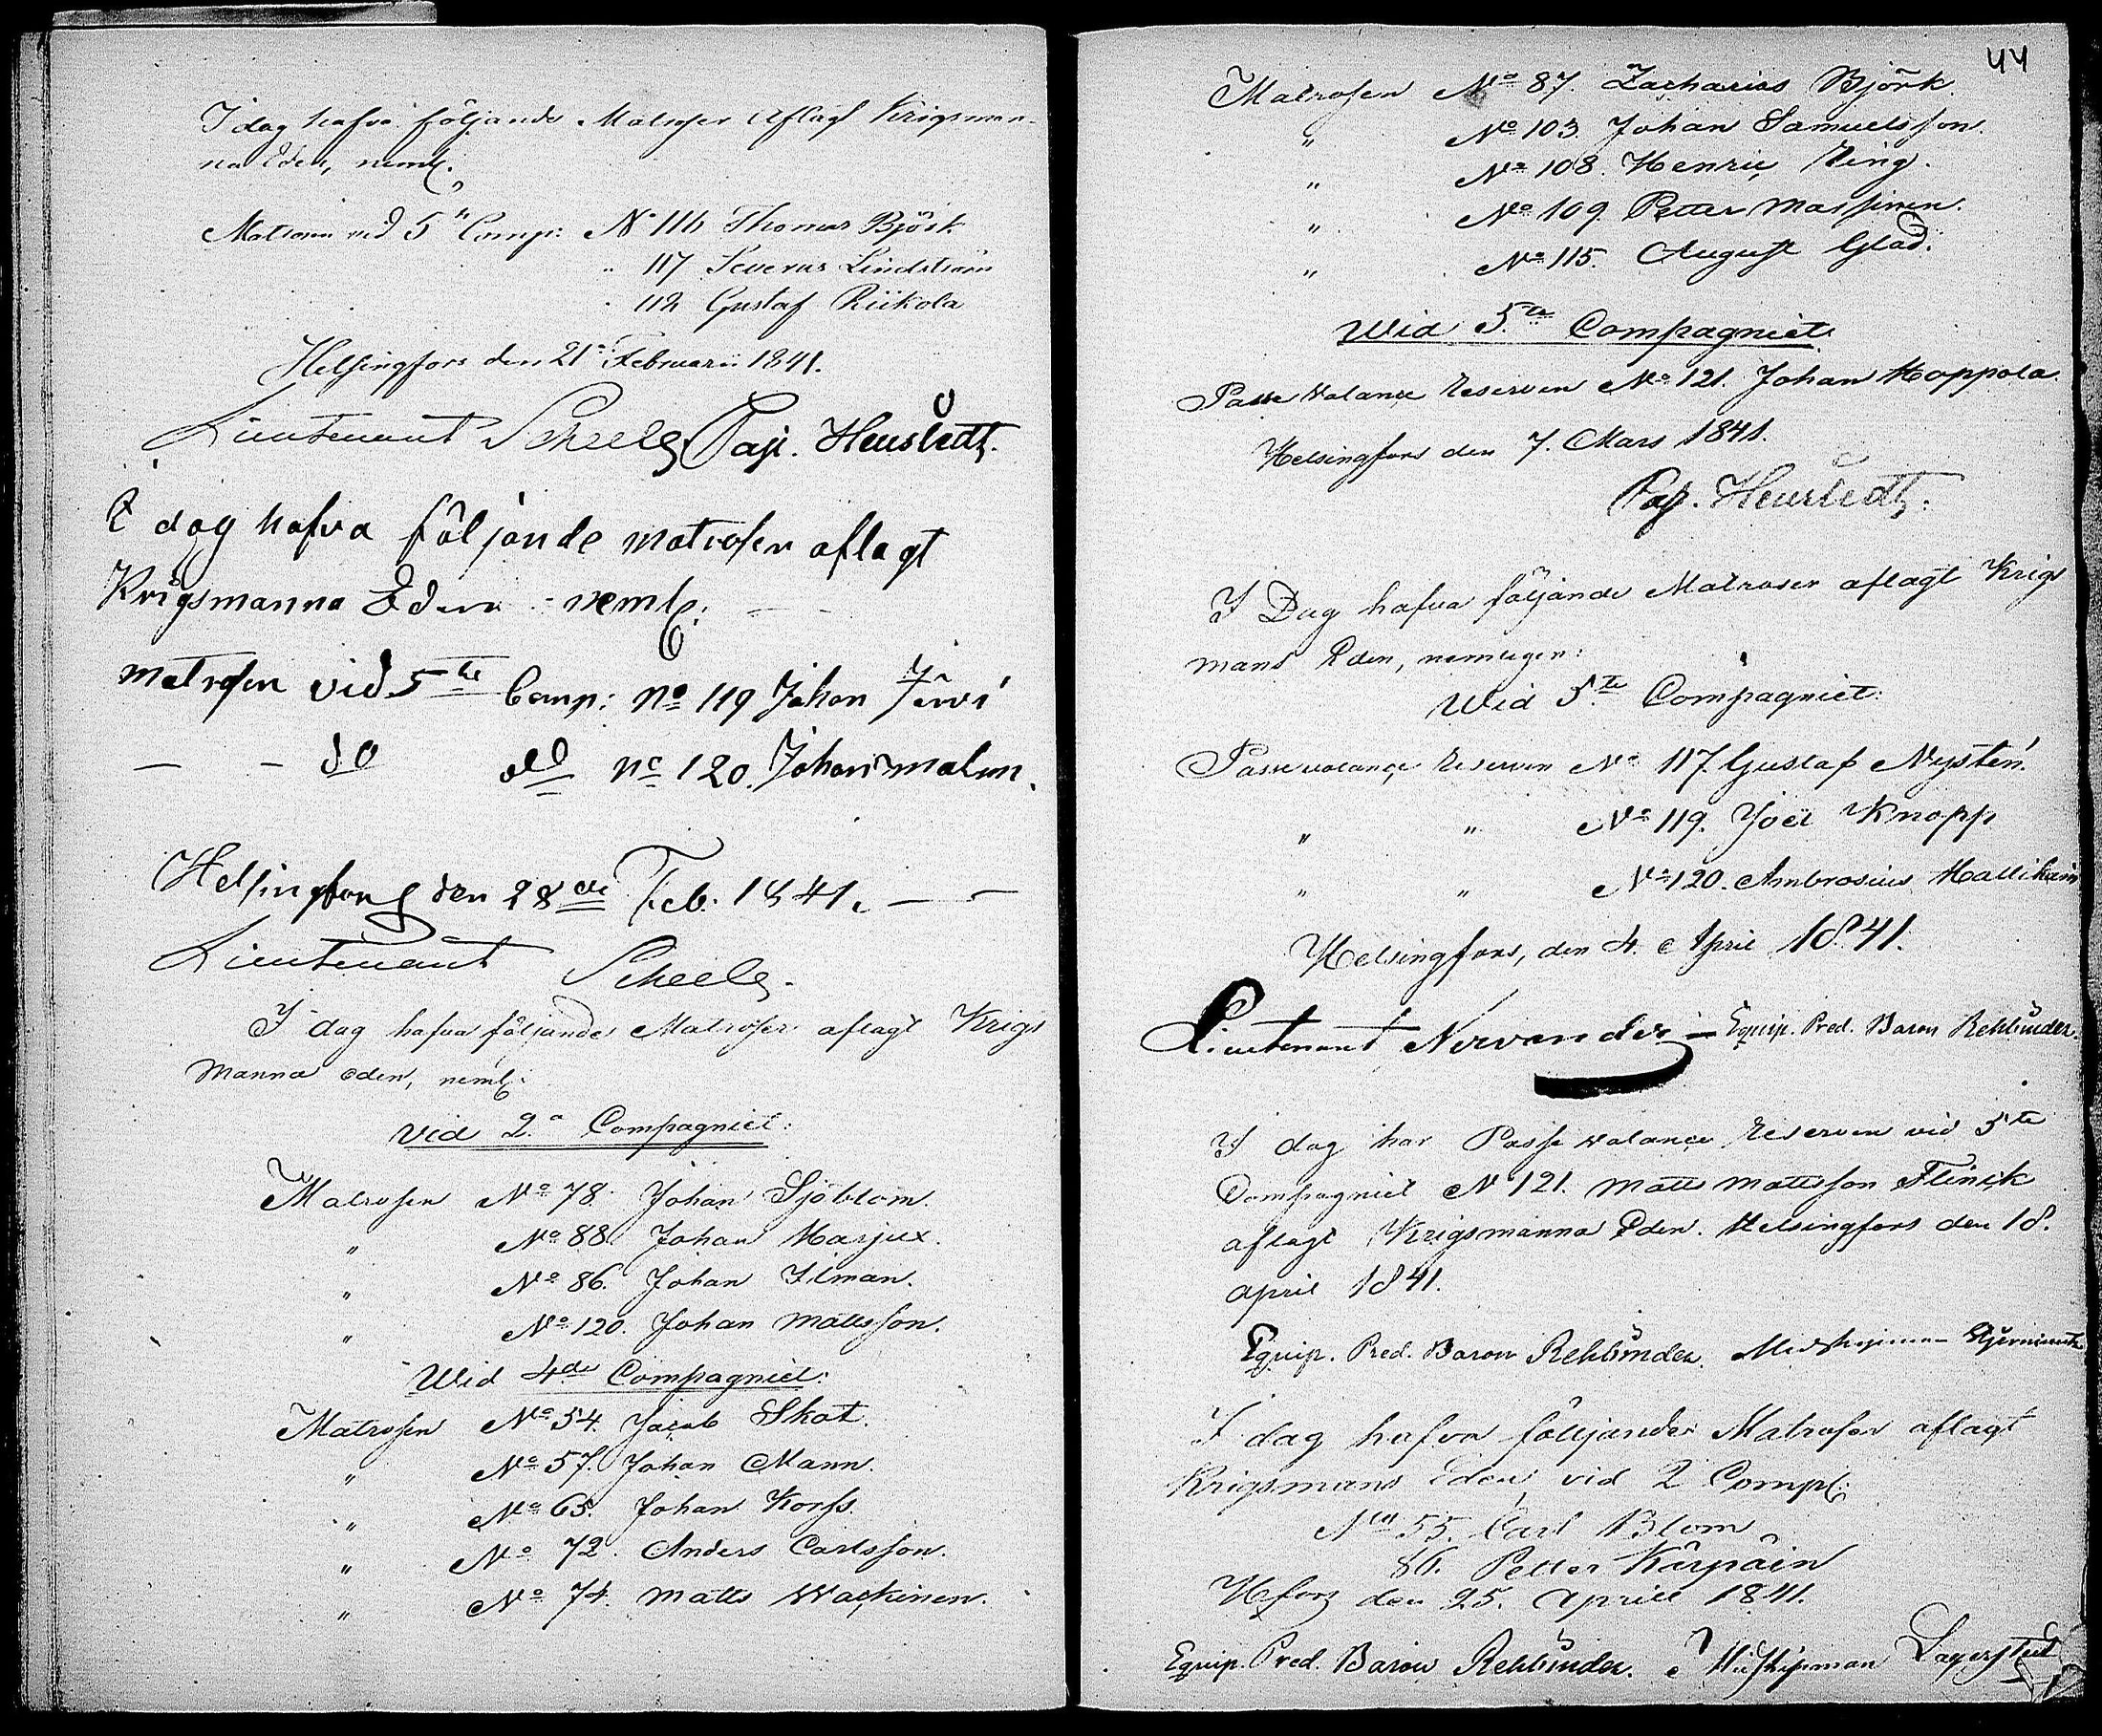 I dag hafva följande Matroser aflagt Krigsman-
na Eden, neml.
Matrosen vid 5te Comp: No 116 Thomas Björk
" 117 Severus Lindström
" 112 Gustaf Riikola
Helsingfors den 21a Februarii 1841.
Lieutenant Scheele Past. Heurstedt.
I dag hafva följande matroser aflagt
Krigsmanna Eden - neml:
matrosen vid 5te Comp: No 119 Johan Järvi
— - do do No 120. Johan malm.
Helsingfors den 28de Feb. 1841. —
Lieutenant Scheele.
I dag hafva följande Matroser aflagt Krigs
manna eden, neml:
Vid 2a Compagniet:
Matrosen No 78. Johan Sjöblom.
" No 88. Johan Marjux.
" No 86. Johan Ilman.
" No 120. Johan Mattsson.
Wid 4de Compagniet:
Matrosen No 54. Jacob Skat.
" No 57. Johan Mann.
" No 65. Johan Korss.
" No 72. Anders Carlsson.
" No 74. Matts Wackinen.
44
Matrosen No 87. Zacharias Björk.
" No 103. Johan Samuelsson.
" No 108. Henric Ring.
" No 109. Petter Massinen.
" No 115. August Glad.
Wid 5te Compagniet
Passe Valance Reserven No 121. Johan Hoppola.
Helsingfors den 7. Mars 1841.
Past. Heurstedt.
I Dag hafva följande Matroser aflagt Krigs
mans Eden, nemligen:
Wid 5te Compagniet:
Passevolance Reserven No 117. Gustaf Nystén.
" " No 119. Joel Knopp
" " No 120. Ambrosius Hallikain
Helsingfors, den 4. April 1841.
Lieutenant Nervander - Equip. Pred. Baron Rehbinder.
I dag har Passe volance Reserven vid 5te
Compagniet N 121. Matts Mattsson Flinck
aflagt Krigsmanna Eden. Helsingfors den 18.
april 1841.
Equip. Pred. Baron Rehbinder. Midshipman
I dag hafva följande Matroser aflagt
Krigsmans Eden vid 2 Comp:
No 55. Carl Blom
86. Petter Kärpäin
Hfors den 25. April 1841.
Equip. Pred. Baron Rehbinder. Midshipman Lagerstedt